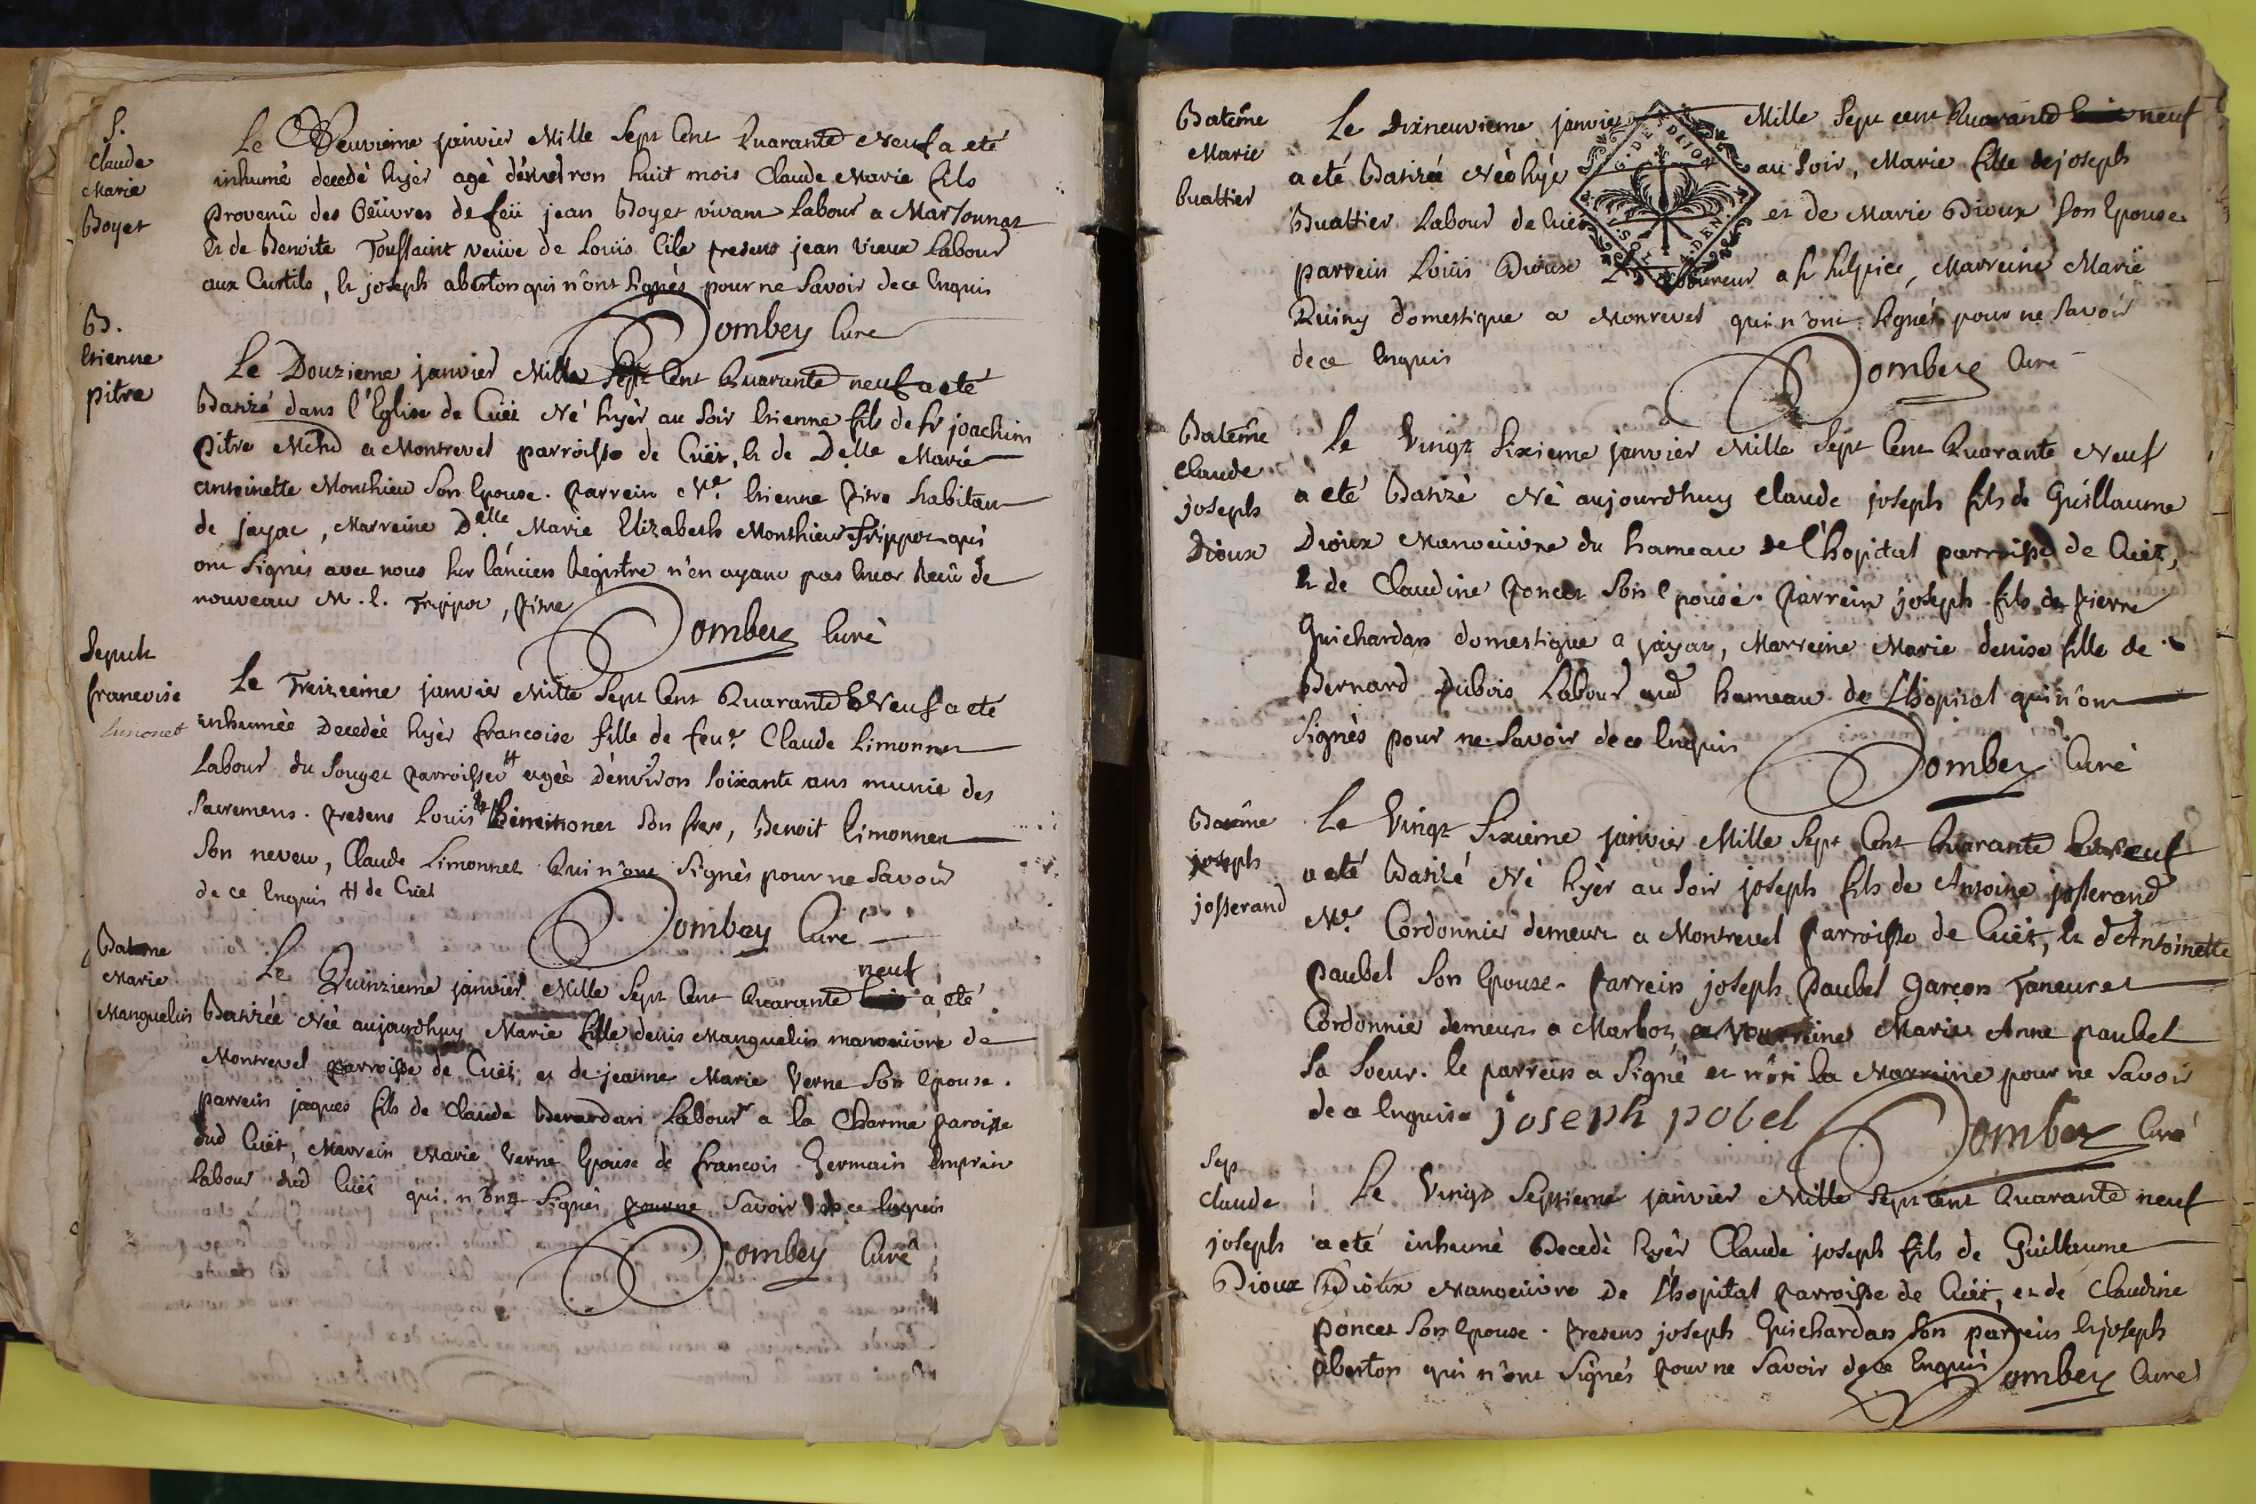 S.
Claude
Marie
Boyet
Le Neuvieme janvier Mille Sept Cent Quarante Neuf a eté
inhumé decedé hyér agé dénviron huit mois Claude Marie fils
provenû des Oeuvres de feü jean Boyet vivant Labour a Marsonnat
et de Benoite Toussaint veüve de Loüis Cile presens jean Vieux Labour
aux Curtils, et joseph aberton qui n'ônt Signés pour ne Savoir de ce Enquis
Dombey Curé
B.
Etienne
pitre
Le Douzieme janvier Mille Sept Cent Quarante neuf a eté
Batizé dans l'Eglise de Cüet Né hyér au Soir Etienne fils de Sr joachim
Pitre Mchd a Montrevel parroisse de Cüet, et de Delle Marie
antoinette Monthieu Son Epouse. Parrein Me. Etienne Pitre habitant
de jayat, Marreine Delle Marie Elizabeth Monthieu frippot qui
ont Signés avec nous Sur lánciens Registre n'en ayant pas Encor Recû de
nouveau M. E. Frippot, Pitre
Dombey Curé
Sepult
francoise
Limonet
Le Treizeime janvier Mille Sept Cent Quarante Neuf a eté
inhumée Decedeé hyér francoise fille de feu Claude Limonnet
Labour du Souget parroisse # agée dénviron Soixante ans munie des
Sacremens. Presens Louis Limonet Son frere, Benoit Limonnet
Son neveu, Claude Limonnet Qui n'ônt Signés pour ne Savoir
de ce Enquis # de Cüet
Dombey Curé
Bateme
Marie
Manguelin
Le Quinzieme janvier Mille Sept Cent Quarante neuf a eté
Batizée Née aujourdhuy Marie fille denis Manguelin manoeüvre de
Montrevel parroisse de Cüet, et de jeanne Marie Verne Son Epouse.
parrein jaques fils de Claude Berardan Labour a la Charme paroisse
dud Cüet, Marrein Marie Verne Epouse de francois Germain Emprin
Labour dud Cüet qui n'ônt Signés pour ne Savoir de ce Enquis
Dombey Curé
Batême
Marie
Buattier
G. DE DIJON
Le Dixneuvieme janvier Mille Sept cent Quarante neuf
a eté Batizée Née hyér au Soir, Marie fille de joseph
Buattier Labour de Cüet et de Marie Dioux Son Epouse
parrein Loüis Dioux Laboureur a St Sulpice, Marreine Marie
Quiny domestique a Monrevel qui n'ont Signés pour ne Savoir
de ce Enquis
Dombey Curé
Batême
Claude
joseph
Dioux
Le Vingt Sixieme janvier Mille Sept Cent Quarante Neuf
a eté Batizé Né aujourdhuy Claude joseph fils de Guillaume
Dioux Manoeüvre du hameau de l'hopital parroisse de Cüet,
et de Claudine Poncet Son Epouse. Parrein joseph fils de Pierre
Guichardan domestique a jayat, Marreine Marie denise fille de
Bernard Dubois Labour aud hameau de L'hopital qui n'ônt
Signés pour ne Savoir de ce Enquis
Dombey Curé
Batême
joseph
josserand
Le Vingt Sixieme janvier Mille Sept Cent Quarante Neuf
a eté Batizé Né hyér au Soir joseph fils de Antoine josserand
Me. Cordonnier demeurt a Montrevel Parroisse de Cüet, et d'Antoinette
Paubel Son Epouse. Parrein joseph Paubel Garçon Taneur et
Cordonnie demeurt a Marboz, Marreine Marie Anne paubel
Sa Soeur. le parrein a Signé et nôn la Marreine pour ne Savoir
de ce Enquise joseph pobel
Dombey Curé
Sep
Claude
joseph
Dioux
Le Vingt Septieme janvier Mille Sept Cent Quarante neuf
a eté inhumé Decedé hyér Claude joseph fils de Guillaume
Dioux Manoeüvre De L'hopital Parroisse de Cüet, et de Claudine
Poncet Son Epouse. Presens joseph Guichardan Son parrein et joseph
Aberton qui n'ônt Signés Pour ne Savoir de ce Enquis Dombey Curé